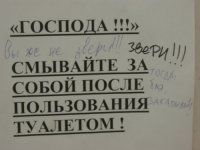 «ГОСПОДА !!!»
Вы же не звери!!! ЗВЕРИ!!!
СМЫВАЙТЕ ЗА
СОБОЙ ПОСЛЕ
ПОЛЬЗОВАНИЯ
ТУАЛЕТОМ !